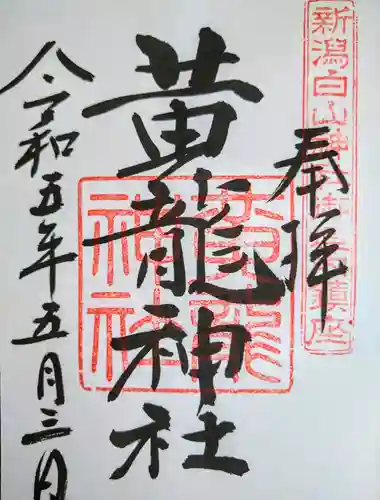 新潟白山神社御境内鎮座
奉拝
黄龍神社
黄龍神社
令和五年五月三日